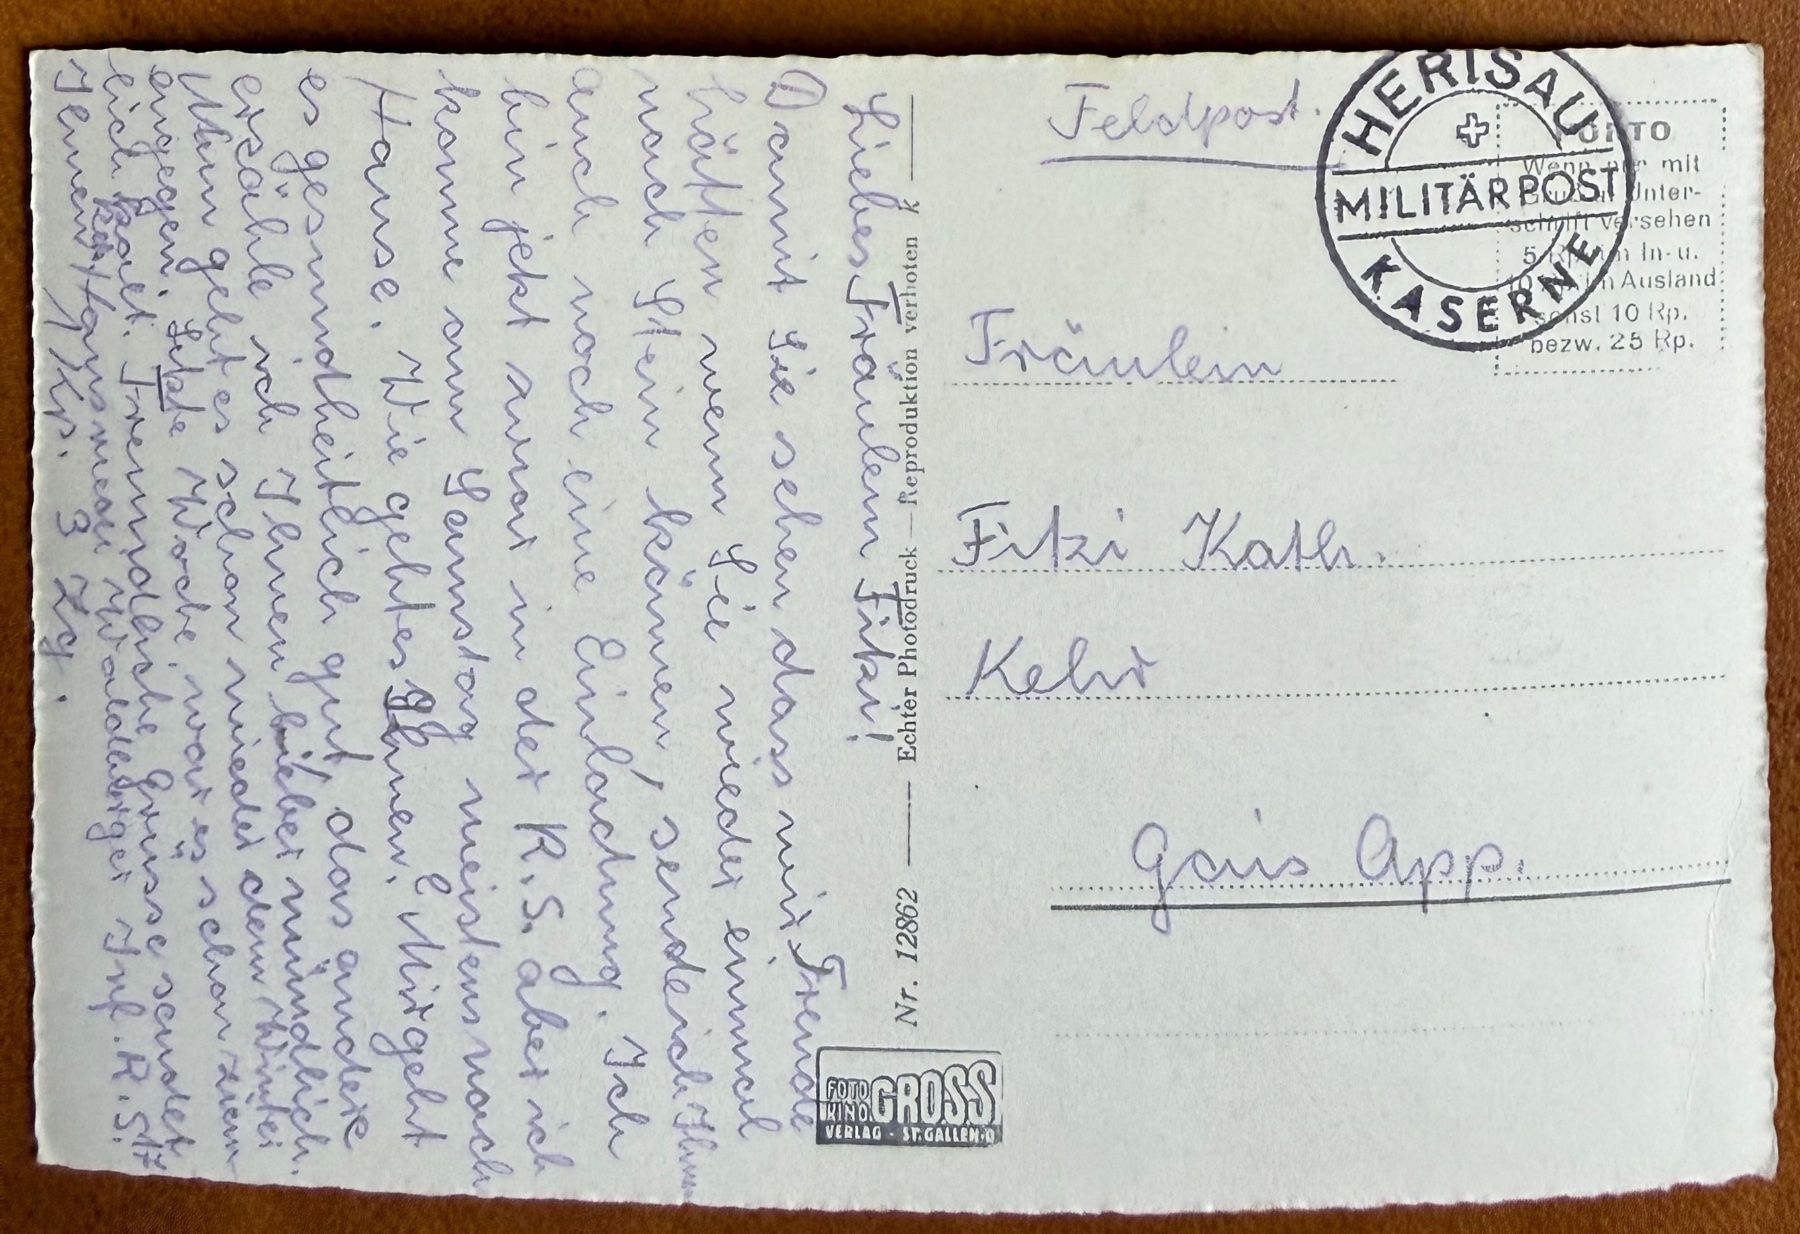 Liebes Fräulein Fitzi!
Damit Sie sehen dass wir Freude
hätten wenn Sie wieder einmal
nach Stein kämen, sende ich Ihnen
auch noch eine Einladung. Ich
bin jetzt zwar in der R.S. aber ich
komme am Samstag meistens nach
Hause. Wie geht es Ihnen. Mir geht
es gesundheitlich gut das andere
erzähle ich Ihnen lieber mündlich.
Nun geht es schon wieder dem Winter
entgegen. Letzte Woche war es schon ziem
lich kalt. Freundliche Grüsse sendet
Ihnen Hansueli Waldburger Inf. R.S. 17
1 Kp. 3 Zg.
Nr. 12862 — Echter Photodruck — Reproduktion verboten k
FOTO KINO GROSS
VERLAG - ST. GALLEN-O
Feldpost.
HERISAU
MILITÄRPOST
KASERNE
PORTO
Wenn nur mit
Gruss u. Unter-
schrift versehen
5 Rp. im In- u.
10 Rp. im Ausland
sonst 10 Rp.
bezw. 25 Rp.
Fräulein
Fitzi Kath.
Kehr
Gais App.